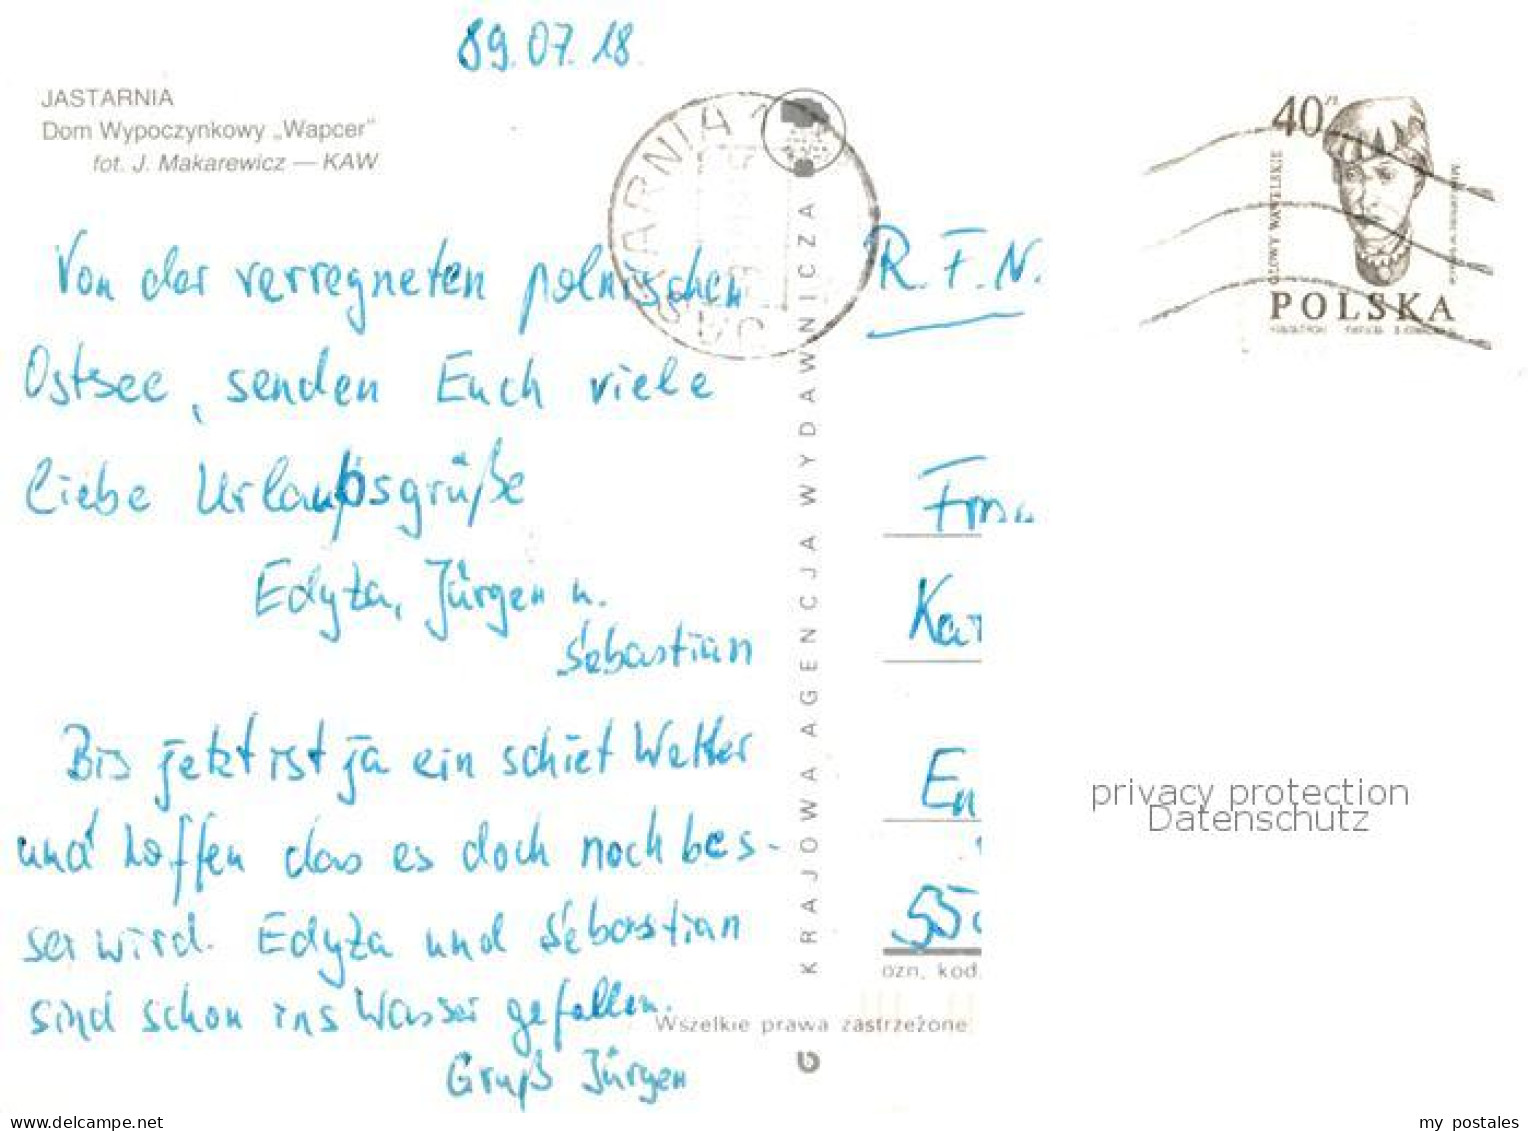 89.07.18
JASTARNIA
Dom Wypoczynkowy „Wapcer”
fot. J. Makarewicz — KAW
Von der verregneten polnischen
Ostsee, senden Euch viele
liebe Urlaubsgrüße
Edyta, Jürgen u.
Sebastian
Bis jetzt ist ja ein schiet Wetter
und hoffen das es doch noch bes-
ser wird. Edyta und Sebastian
sind schon ins Wasser gefallen.
Gruß Jürgen
KRAJOWA AGENCJA WYDAWNICZA
R.F.N.
40 zł
GŁOWY WAWELSKIE
POLSKA
Kai
En
55
ozn. kod.
Wszelkie prawa zastrzeżone
privacy protection
Datenschutz
www.delcampe.net
my_postales